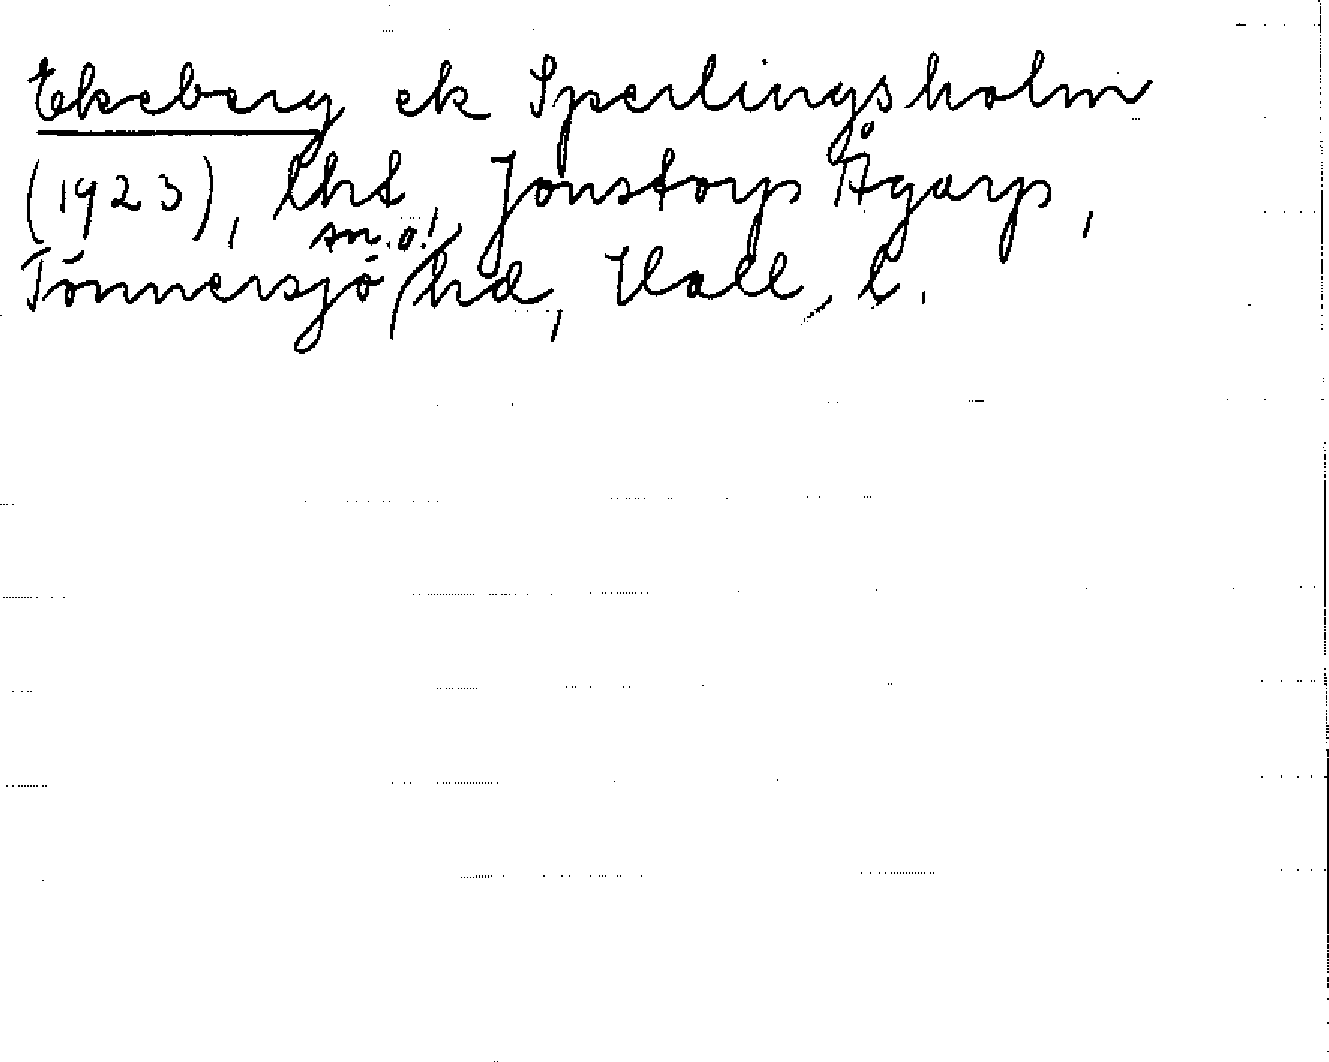 Ekeberg ek Sperlingsholm
(1923), lht, Jonstorps Ågarp,
sn. o!
Tönnersjö hd, Hall, l.